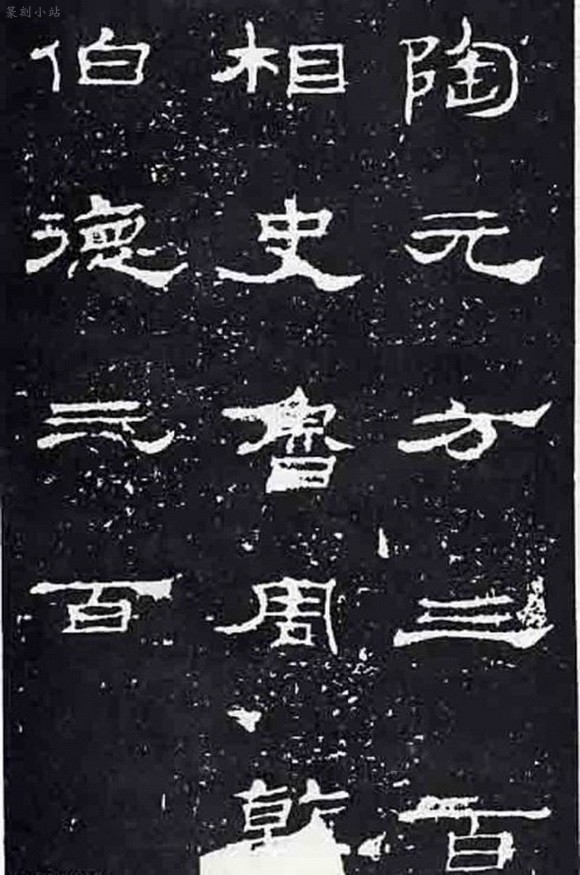 篆刻小站
陶元方三百
相史魯周乾
伯德三百